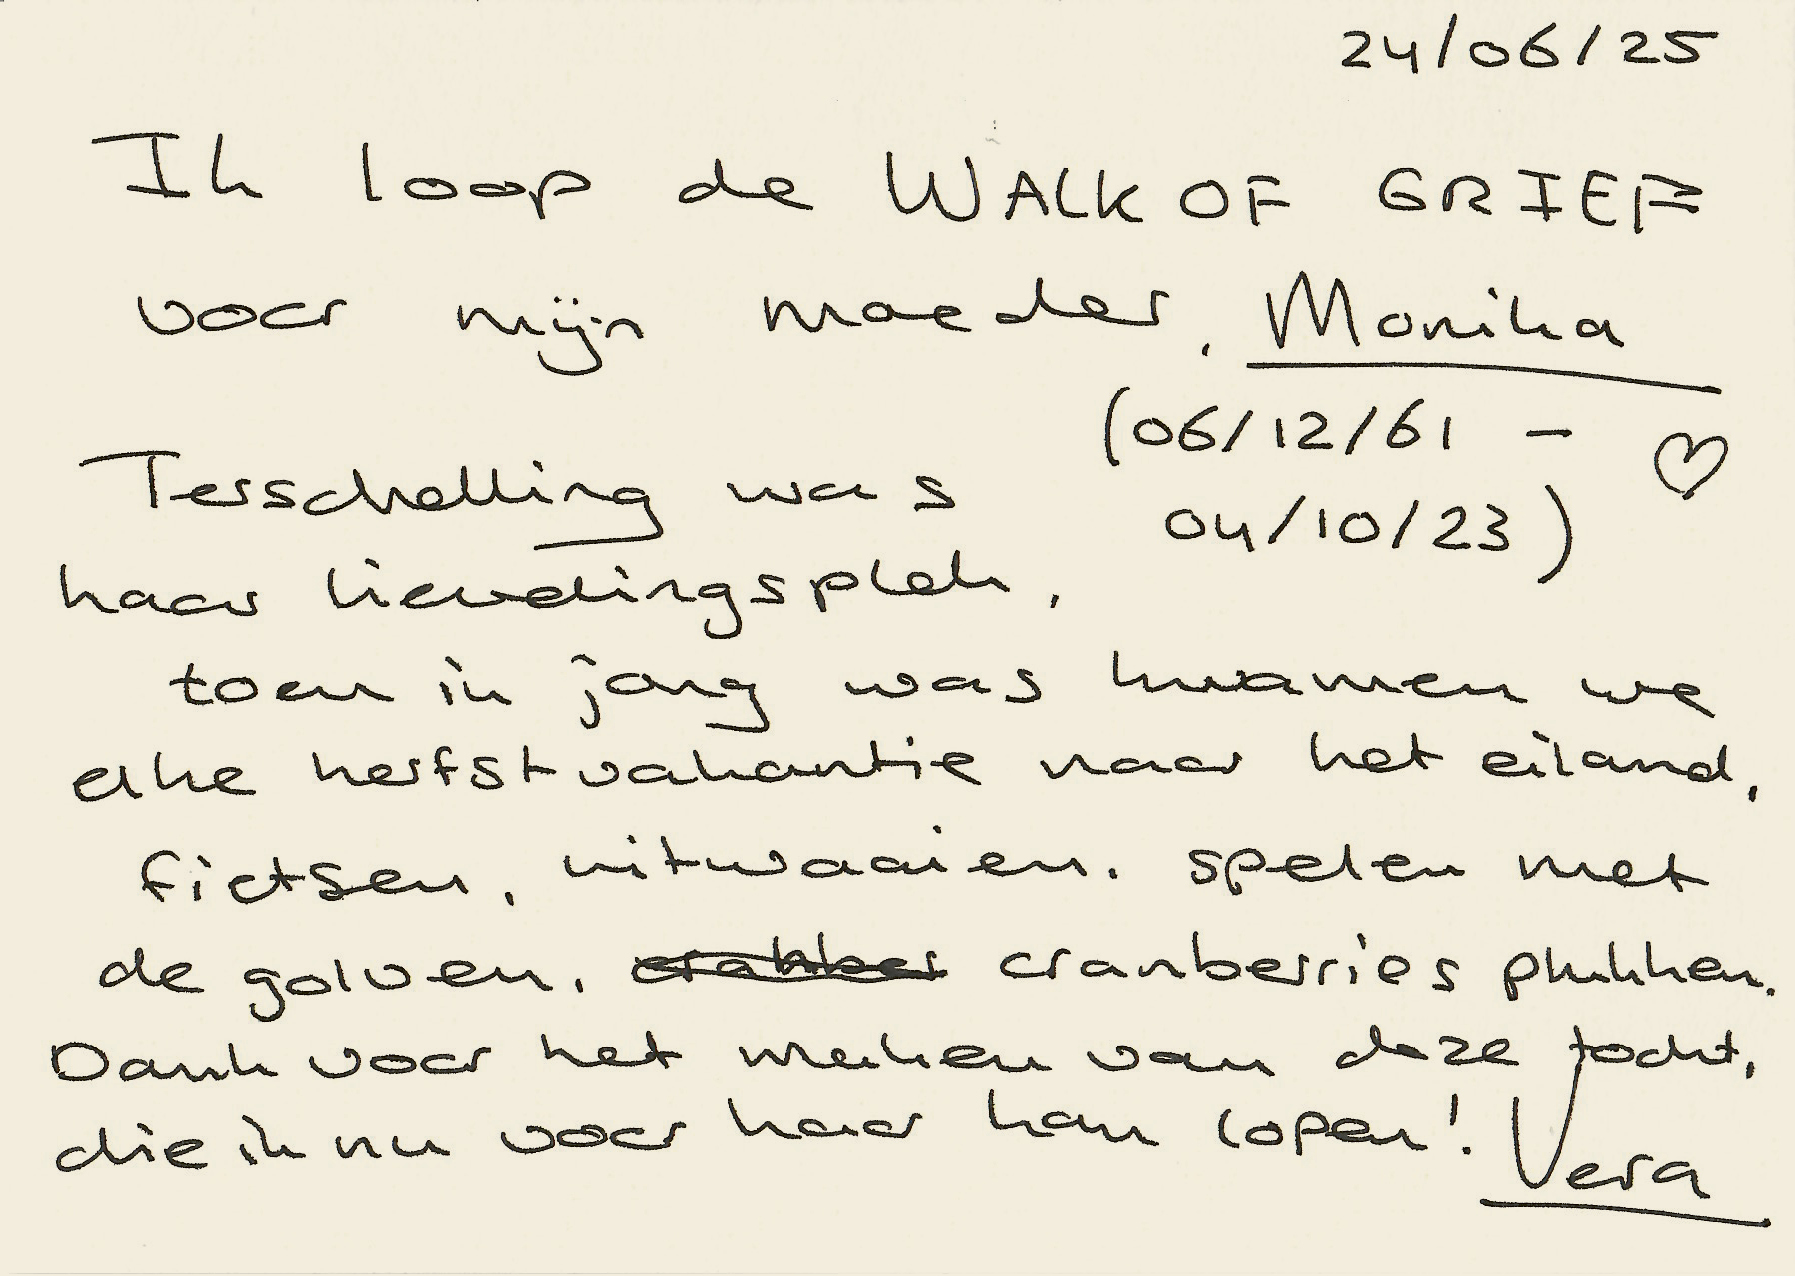 24/06/25
Ik loop de WALK OF GRIEF
voor mijn moeder, Monika
(06/12/61 - ♡
04/10/23)
Terschelling was
haar lievelingsplek,
toen ik jong was kwamen we
elke herfstvakantie naar het eiland,
fietsen, uitwaaien. spelen met
de golven, cranberries plukken.
Dank voor het maken van deze tocht,
die ik nu voor haar kan lopen! Vera